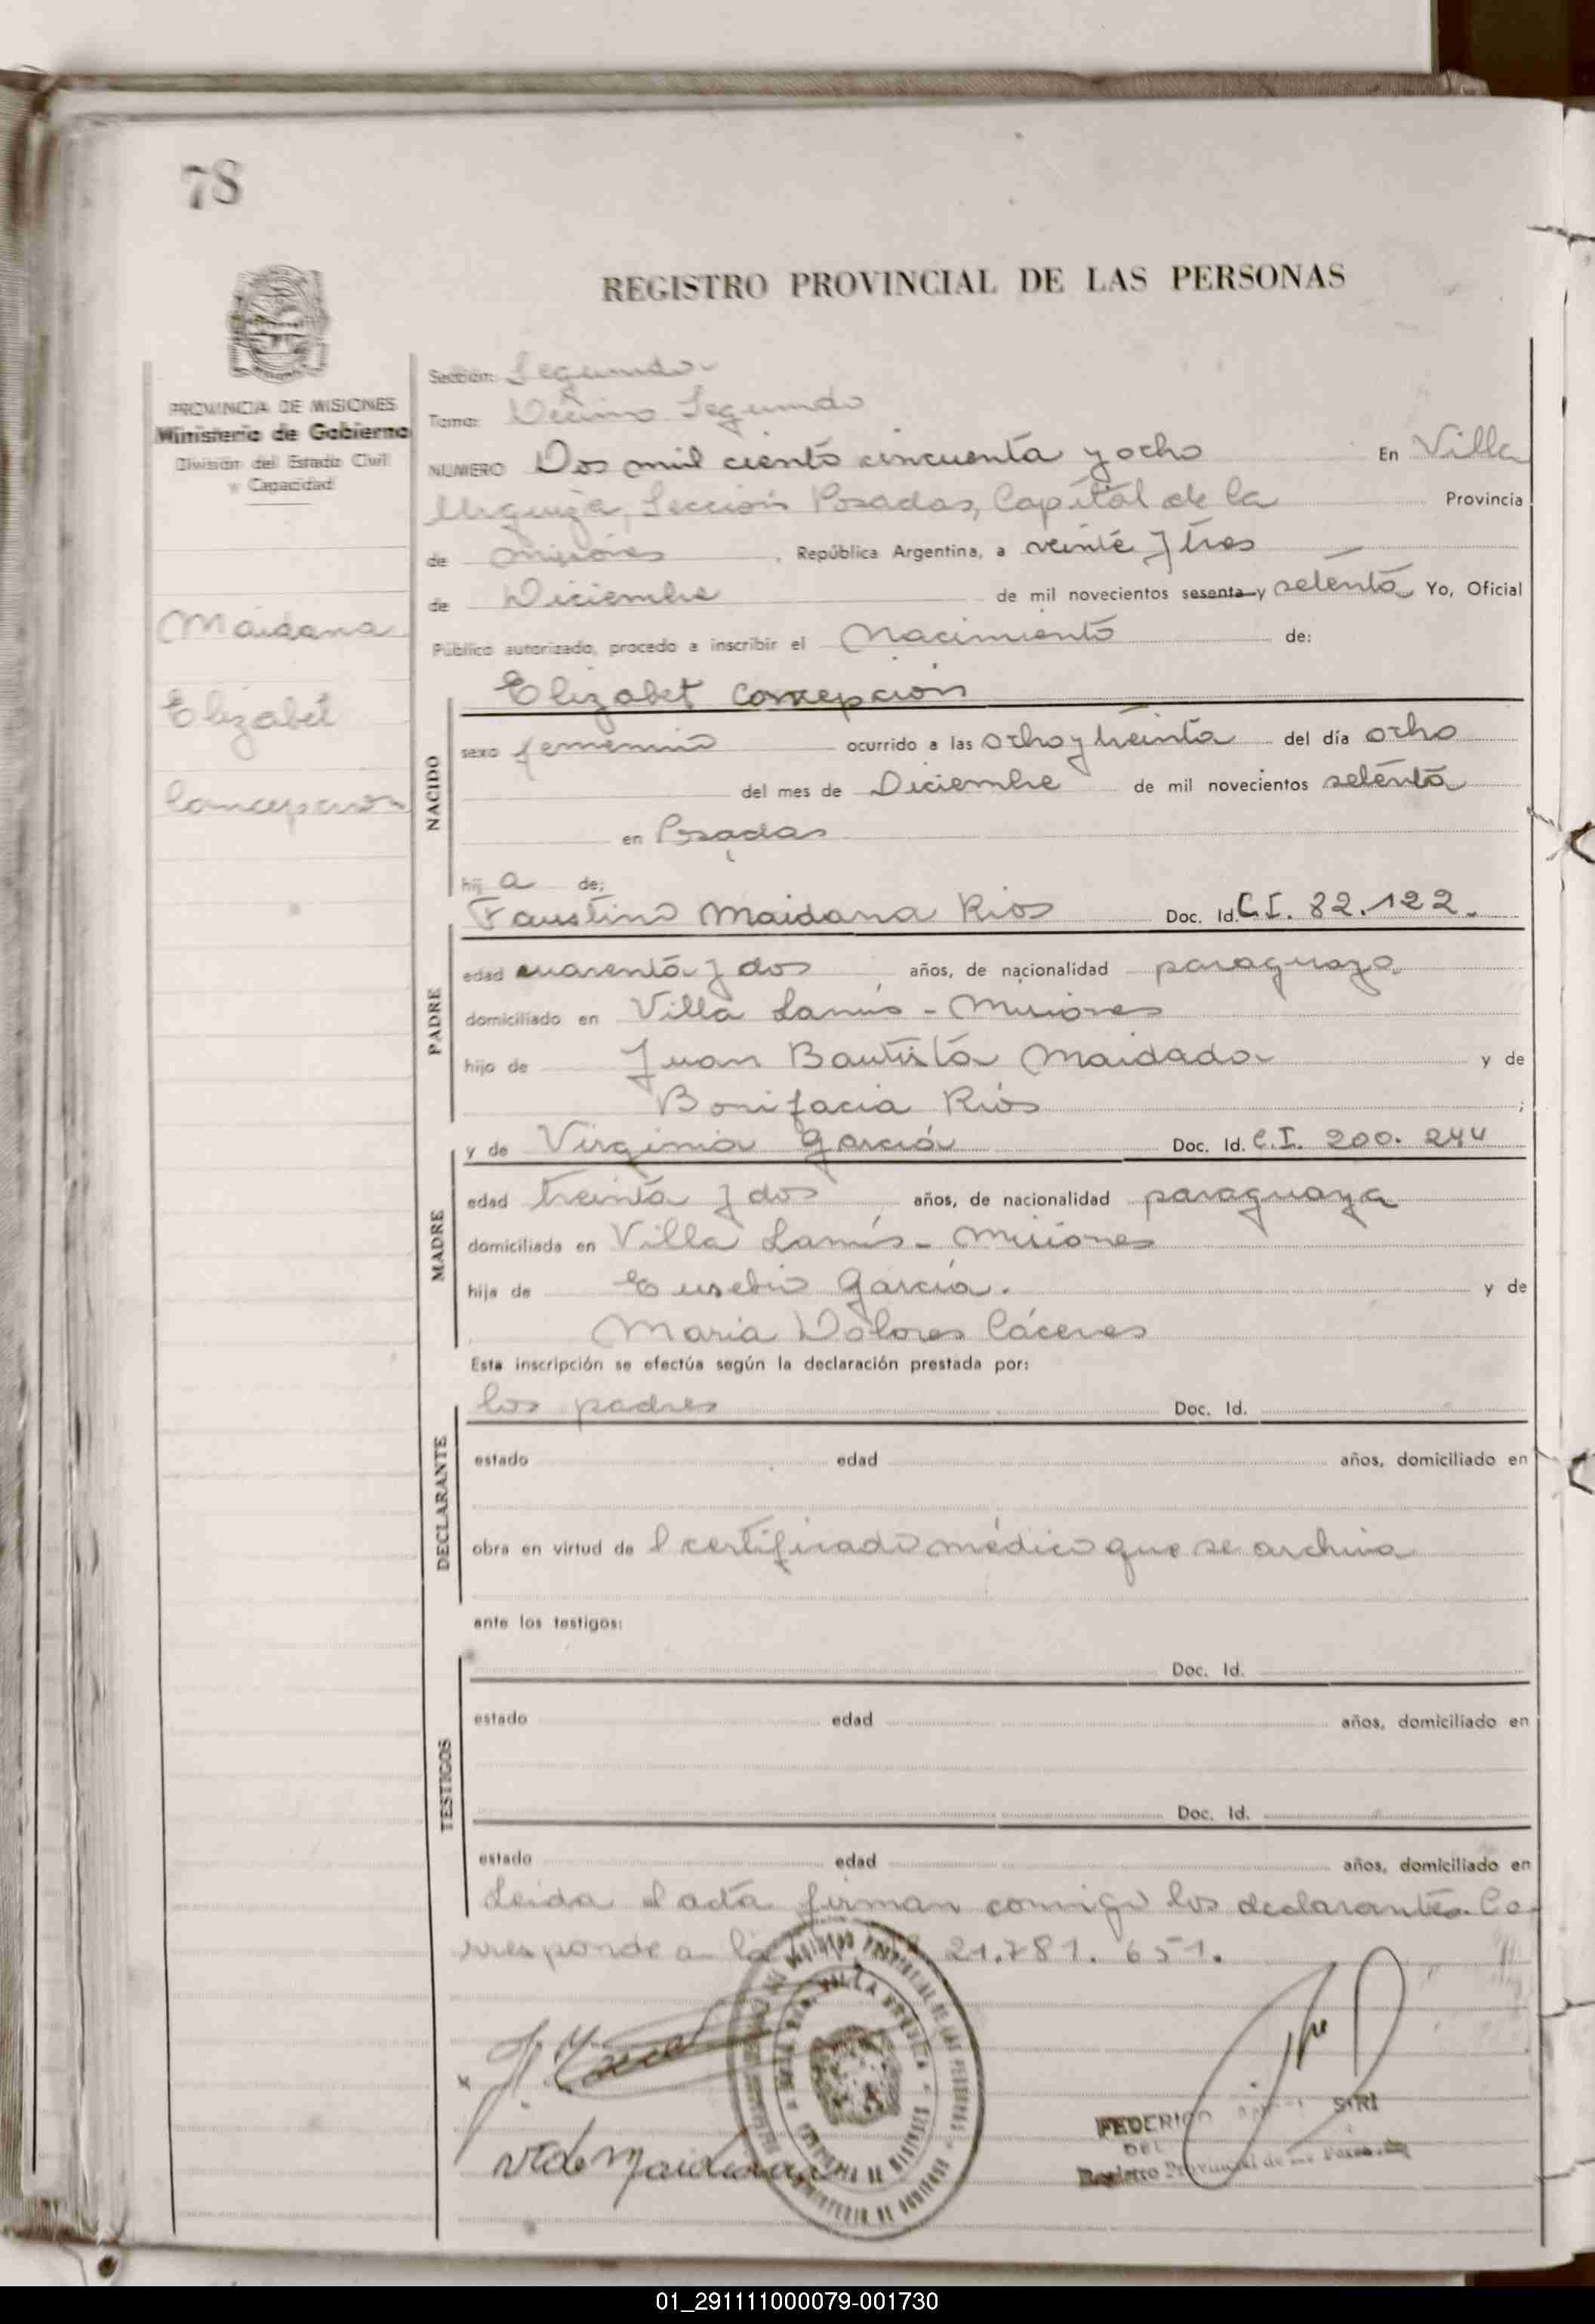 78
REGISTRO PROVINCIAL DE LAS PERSONAS
PROVINCIA DE MISIONES
Ministerio de Gobierno
División del Estado Civil
y Capacidad
Maidana
Elizabet
Concepcion
Sección: Segunda
Tomo: Décimo Segundo
NUMERO Dos mil ciento cincuenta y ocho En Villa
Urquiza, Sección Posadas, Capital de la Provincia
de Misiones, República Argentina, a veinte y tres
de Diciembre de mil novecientos sesenta y setenta Yo, Oficial
Público autorizado, procedo a inscribir el Nacimiento de:
NACIDO
Elizabet Concepción
sexo femenino ocurrido a las ocho y treinta del día ocho
del mes de Diciembre de mil novecientos setenta
en Posadas
hij a de:
PADRE
Faustino Maidana Rios Doc. Id. C.I. 82.122.
edad cuarenta y dos años, de nacionalidad paraguaya
domiciliado en Villa Lanús - Misiones
hijo de Juan Bautista Maidada y de
Bonifacia Riós ;
MADRE
y de Virginia García Doc. Id. C.I. 200.244
edad treinta y dos años, de nacionalidad paraguaya
domiciliada en Villa Lanús - Misiones
hija de Eusebio García. y de
Maria Dolores Cáceres
Esta inscripción se efectúa según la declaración prestada por:
DECLARANTE
los padres Doc. Id.
estado edad años, domiciliado en
obra en virtud de l certificado médico que se archiva
ante los testigos:
TESTIGOS
Doc. Id.
estado edad años, domiciliado en
Doc. Id.
estado edad años, domiciliado en
Leida el acta firman conmigo los declarantes. Co-
rresponde a la 21.781.651.
V. de Maidana
FEDERICO SIRI
DEL
Registro Provincial de las Personas
01_291111000079-001730